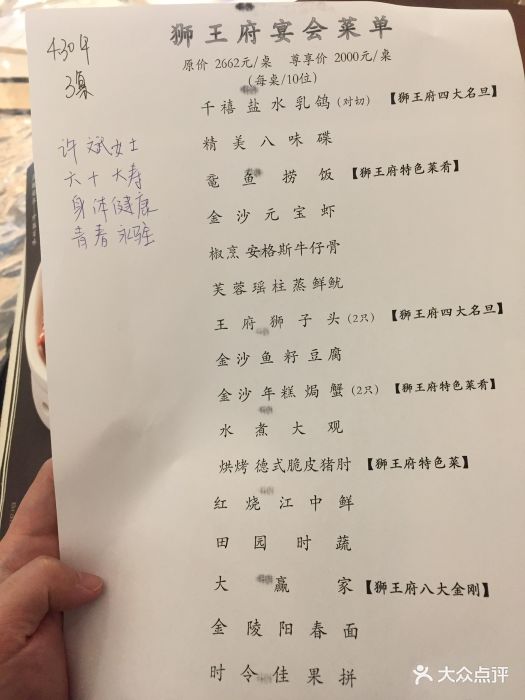 狮王府宴会菜单
原价 2662元/桌 尊享价 2000元/桌
（每桌/10位）
千禧盐水乳鸽（对切）【狮王府四大名旦】
精美八味碟
鱼捞饭【狮王府特色菜肴】
金沙元宝虾
椒烹安格斯牛仔骨
芙蓉瑶柱蒸鲜鱿
王府狮子头（2只）【狮王府四大名旦】
金沙鱼籽豆腐
金沙年糕焗蟹（2只）【狮王府特色菜肴】
水煮大观
烘烤德式脆皮猪肘【狮王府特色菜】
红烧江中鲜
田园时蔬
大赢家【狮王府八大金刚】
金陵阳春面
时令佳果拼
430
3桌
许斌女士
六十大寿
身体健康
青春永驻
大众点评